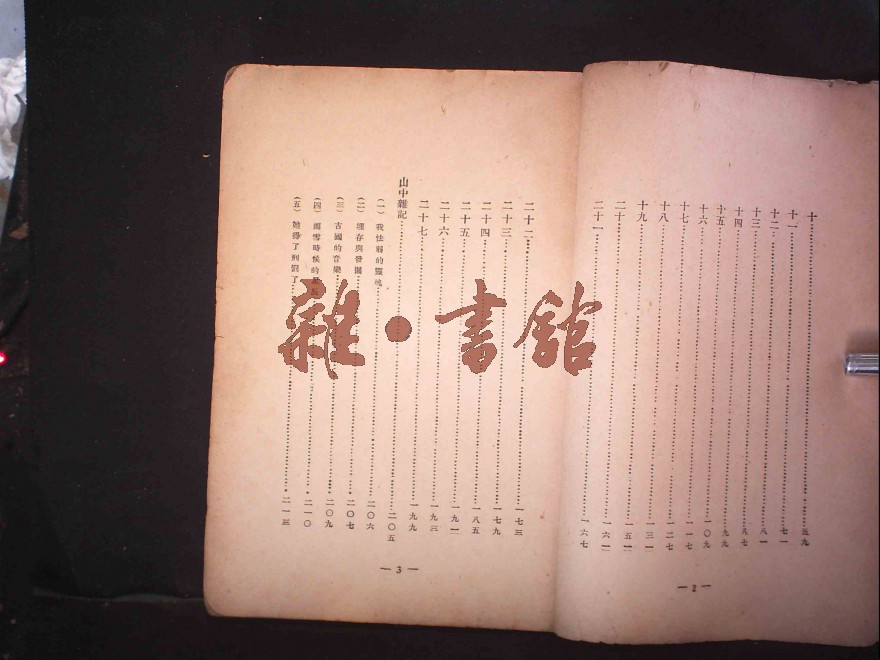 十……五九
十一……七一
十二……八一
十三……八七
十四……九九
十五……一〇九
十六……一一七
十七……一二七
十八……一三一
十九……一五一
二十……一六一
二十一……一六七
—2—
二十二……一七三
二十三……一七九
二十四……一八五
二十五……一九一
二十六……一九三
二十七……一九九
山中雜記……二〇五
(一) 我怯弱的靈魂……二〇六
(二) 埋存與發掘……二〇七
(三) 古國的音樂……二〇九
(四) 雨雪時候的星辰……二一〇
(五) 她得了刑罰了……二一三
—3—
雜·書館